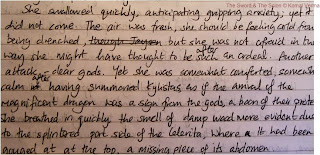 The Sword & The Spies © Komal Verma
She swallowed quickly, anticipating gripping anxiety, yet it
did not come. The air was fresh, she should be feeling cold from
being drenched, though Jaygen but she was not afraid in the
way she might have thought to be after such an ordeal. Another
attack clear gods. Yet she was somewhat comforted, somewhat
calm at having summoned as if the arrival of the
magnificent dragon was a sign from the gods, a boon of their
She breathed in quickly, the smell of damp wood more evident due
to the splintered port side of the, where it had been
at the top, a missing piece of its abdomen.